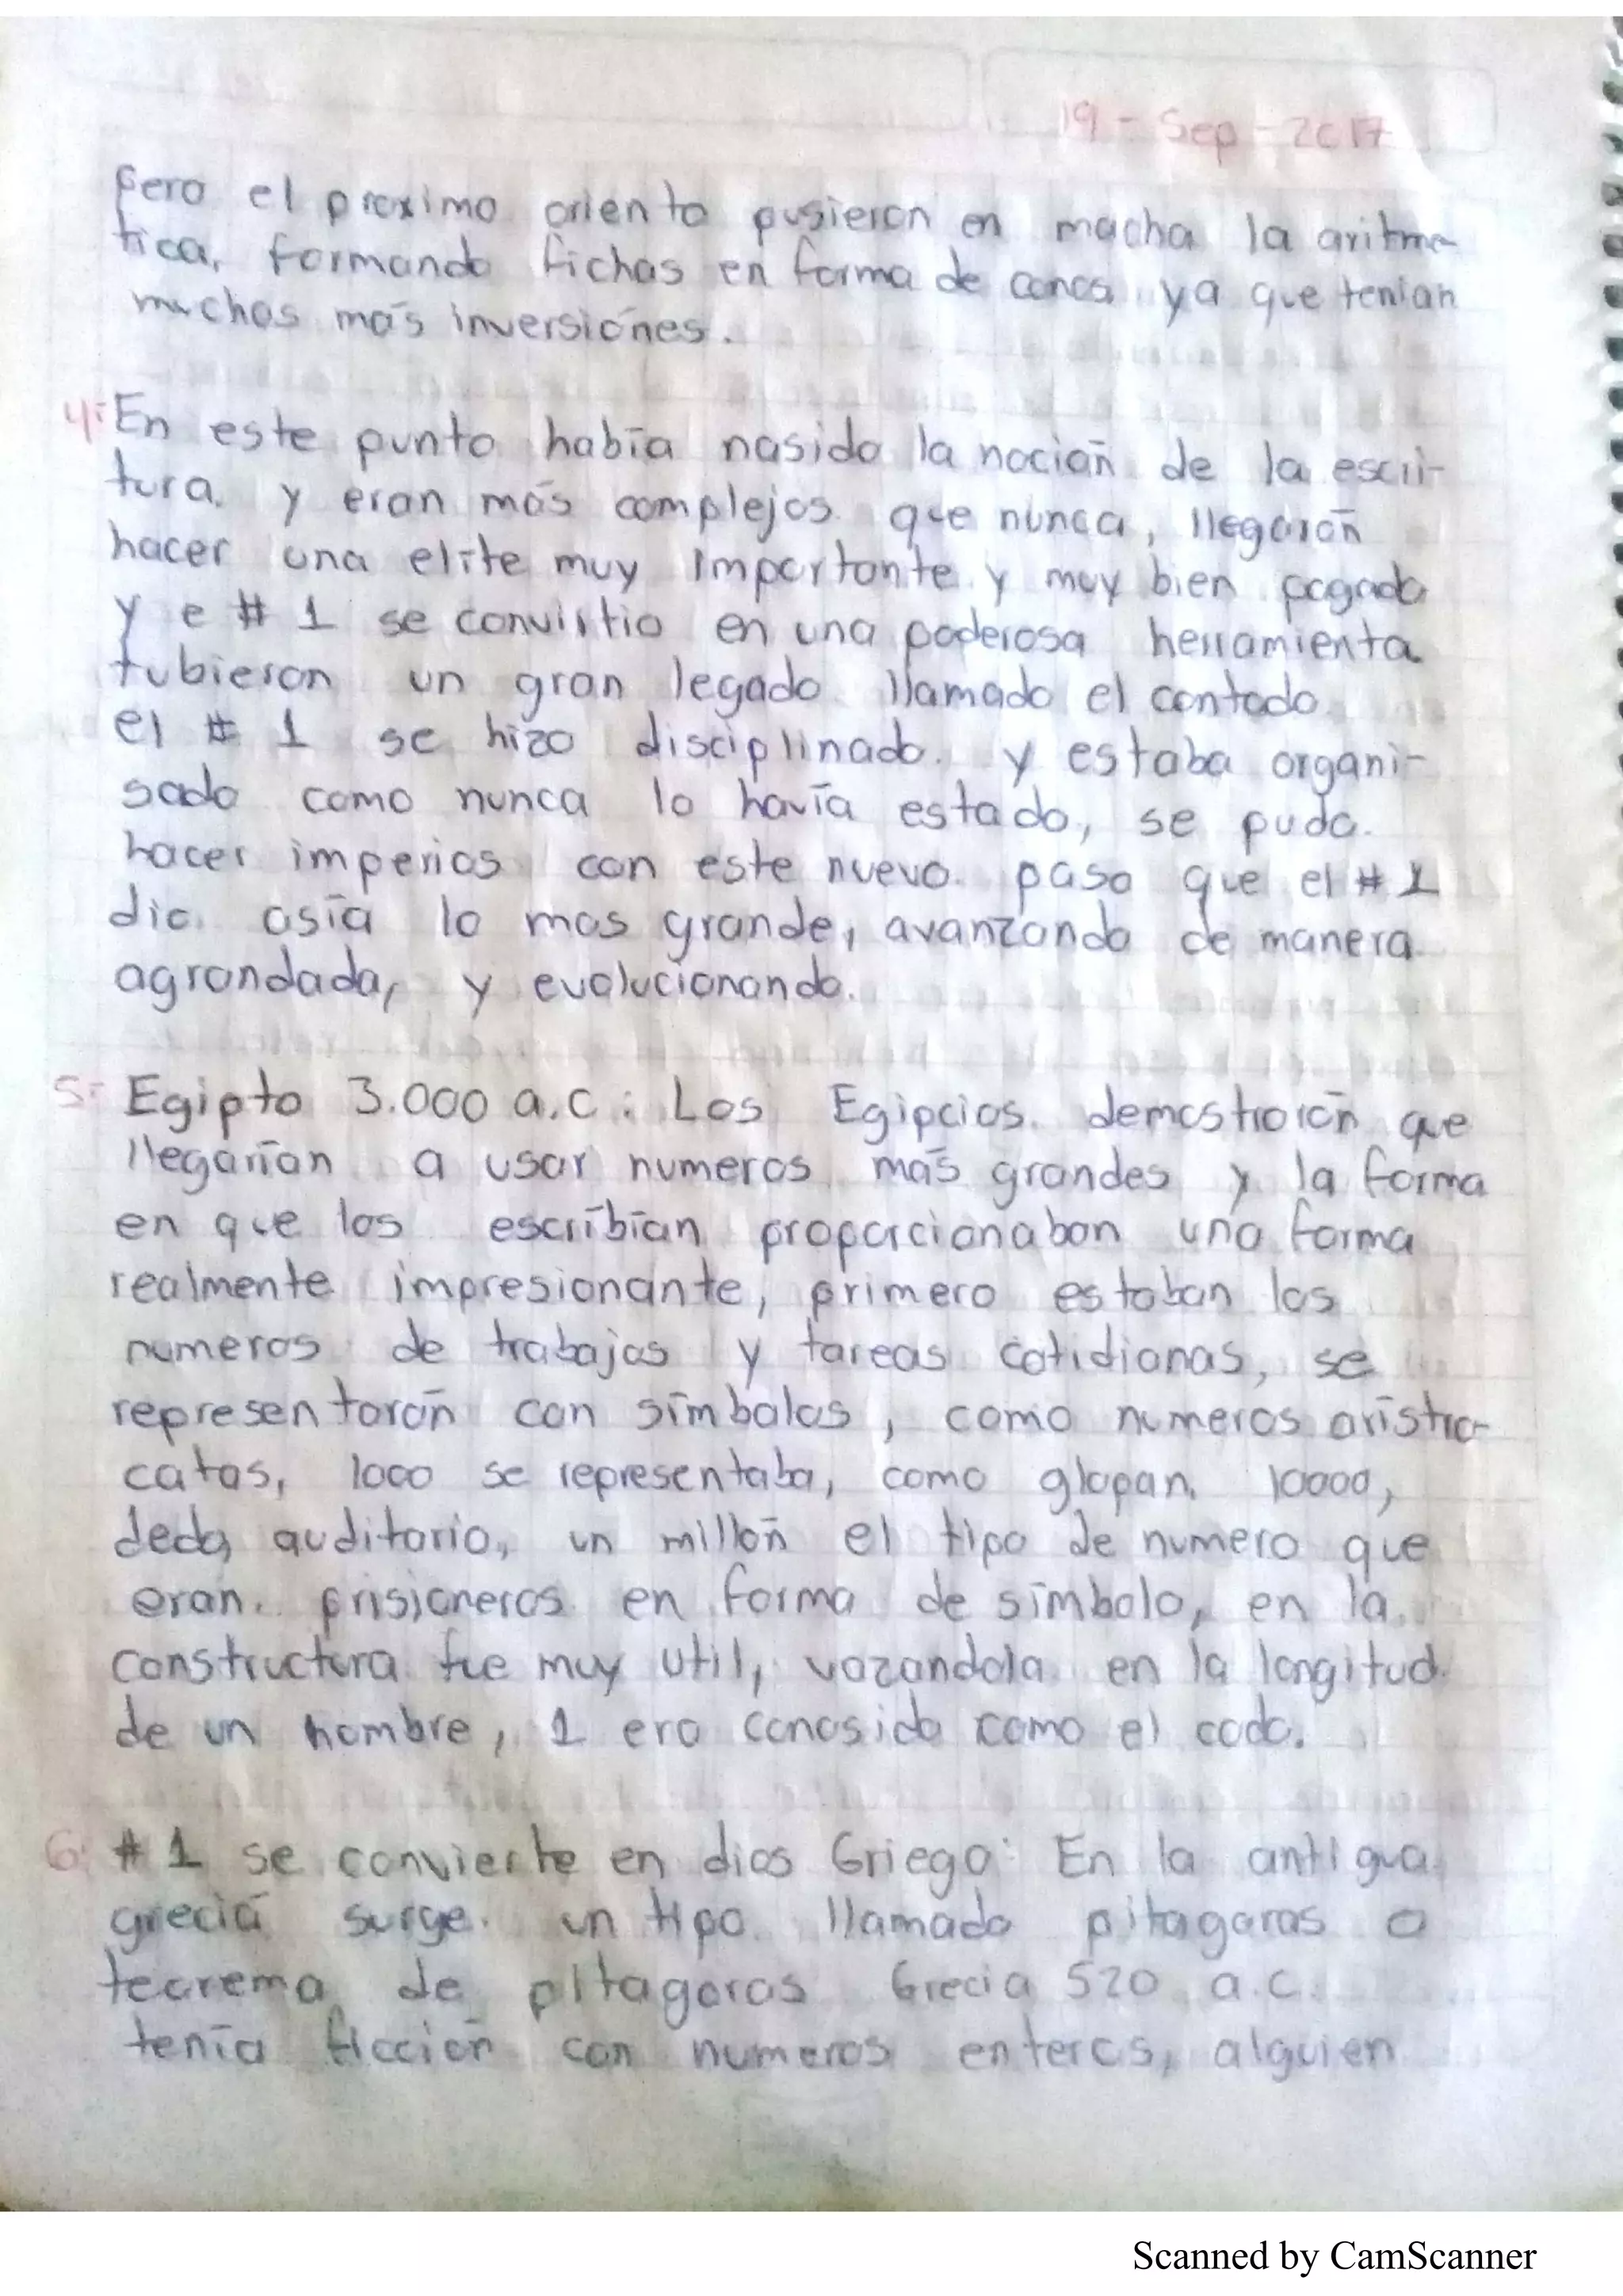 19 - Sep - 2017
Pero el proximo oriento pusieron en macha la aritme
tica, formando fichas en forma de conos ya que tenian
muchos más inversiónes.
4: En este punto había nasido la noción de la escri-
tura. y eran más complejos que nunca, llegarón
hacer una elite muy importante y muy bien pagado
y e # 1 se convirtio en una poderosa herramienta
tubieron un gran legado llamado el contado.
el # 1 se hizo disciplinado. y estaba organi-
sado como nunca lo havía estado, se pudo.
hacer imperios con este nuevo paso que el # 1
dio. asía lo mas grande, avanzando de manera
agrandada, y evolucionando.
5: Egipto 3.000 a.c: Los Egipcios. demostrorón que
llegarían a usar numeros más grandes y la forma
en que los escríbían proporcionaban una forma
realmente impresionante, primero estaban los
numeros de trabajos y tareas cotidianas, se
representarón con símbolos, como numeros arístro-
catas, 1000 se representaba, como glopan. 10000,
dedo, auditorio, un millón el tipo de numero que
eran. prisioneros en forma de símbolo, en la
constructura fue muy util, vazandola en la longitud
de un hombre, 1 era conosido como el codo.
6: # 1 se convierte en dios Griego: En la antigua
grecia surge. un tipo llamado pitagoras o
teorema de pitagoras Grecia 520 a.c.
tenía ficción con numeros enteros, alguien
Scanned by CamScanner